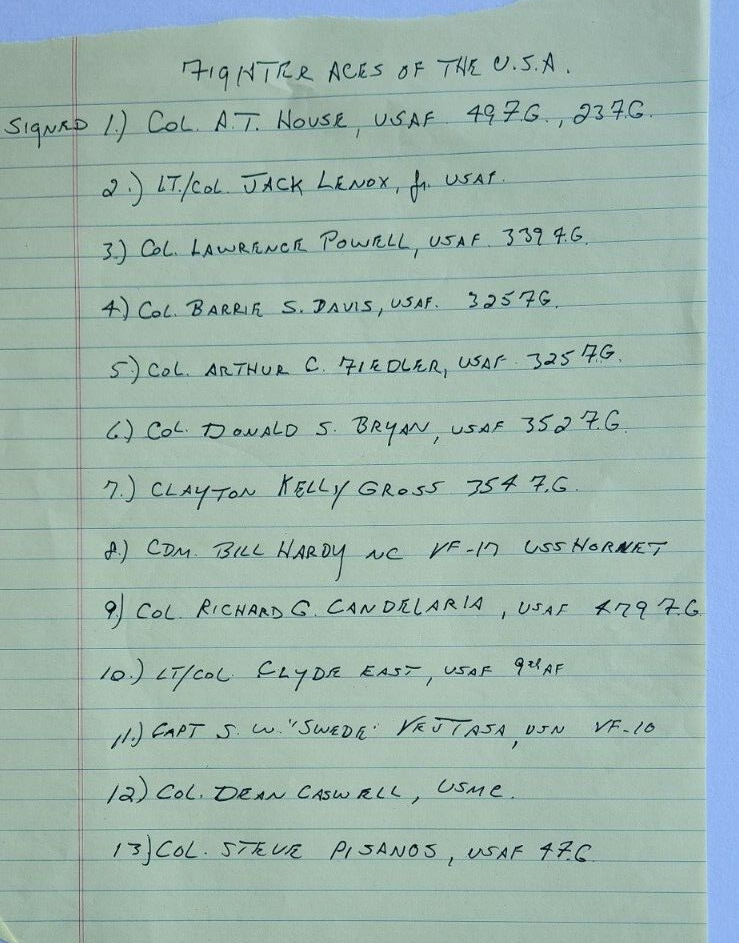 FIGHTER ACES OF THE U.S.A.
SIGNED 1.) COL. A.T. HOUSE, USAF 49 F.G., 23 F.G.
2.) LT./COL. JACK LENOX, Jr. USAF.
3.) COL. LAWRENCE POWELL, USAF. 339 F.G.
4.) COL. BARRIE S. DAVIS, USAF. 325 FG.
5.) COL. ARTHUR C. FIEDLER, USAF. 325 F.G.
6.) COL. DONALD S. BRYAN, USAF 352 F.G.
7.) CLAYTON KELLY GROSS 354 F.G.
8.) CDM. BILL HARDY NC VF-17 USS HORNET
9) COL. RICHARD G. CANDELARIA, USAF 479 F.G.
10.) LT/COL. CLYDE EAST, USAF 9th AF
11.) CAPT S. W. "SWEDE" VEJTASA, USN VF-10
12) COL. DEAN CASWELL, USMC.
13) COL. STEVE PISANOS, USAF 4 F.G.